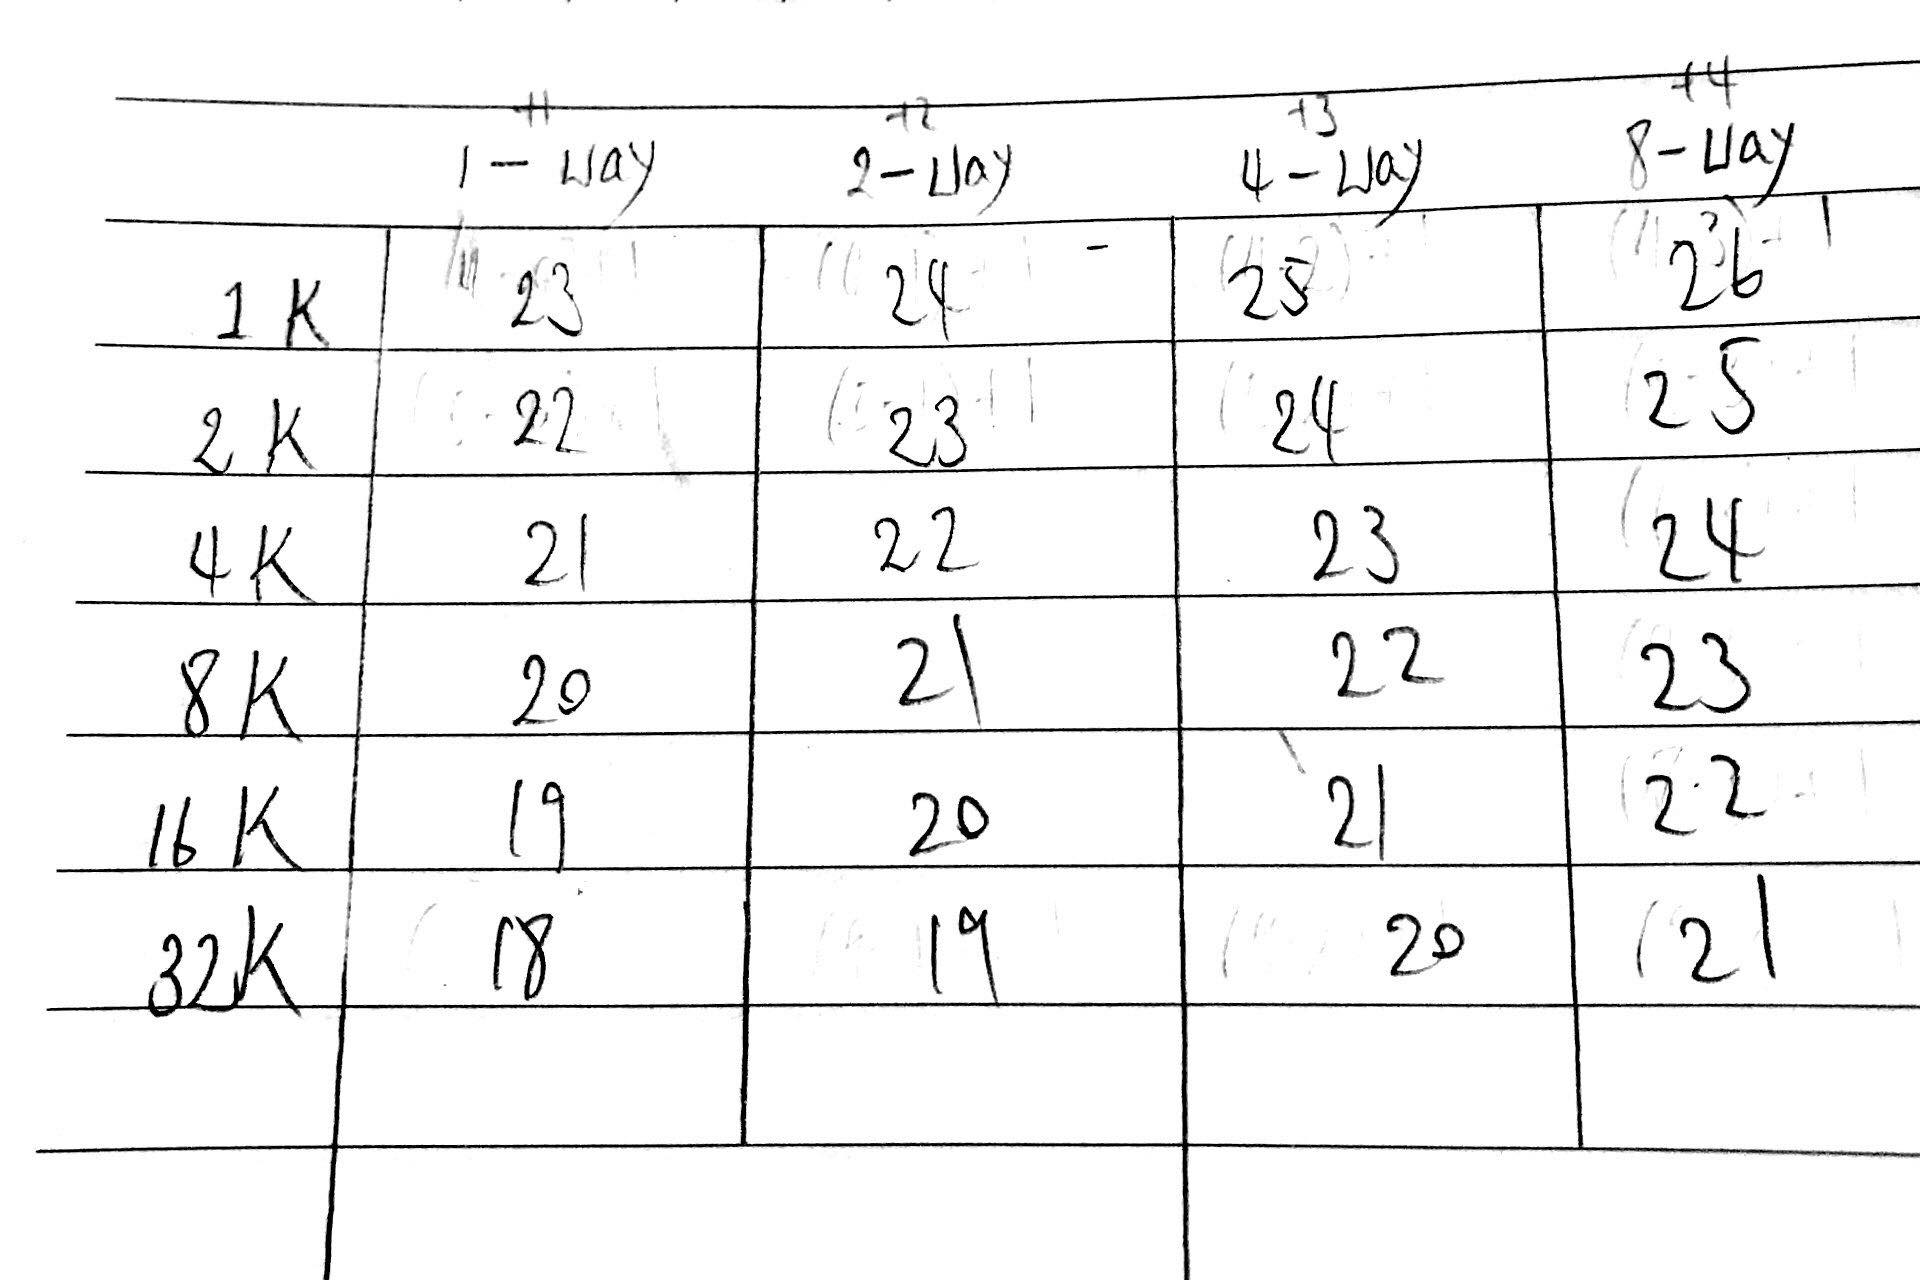 +1 +2 +3 +4
1-way 2-way 4-way 8-way
1K 23 24 25 26
2K 22 23 24 25
4K 21 22 23 24
8K 20 21 22 23
16K 19 20 21 22
32K 18 19 20 21